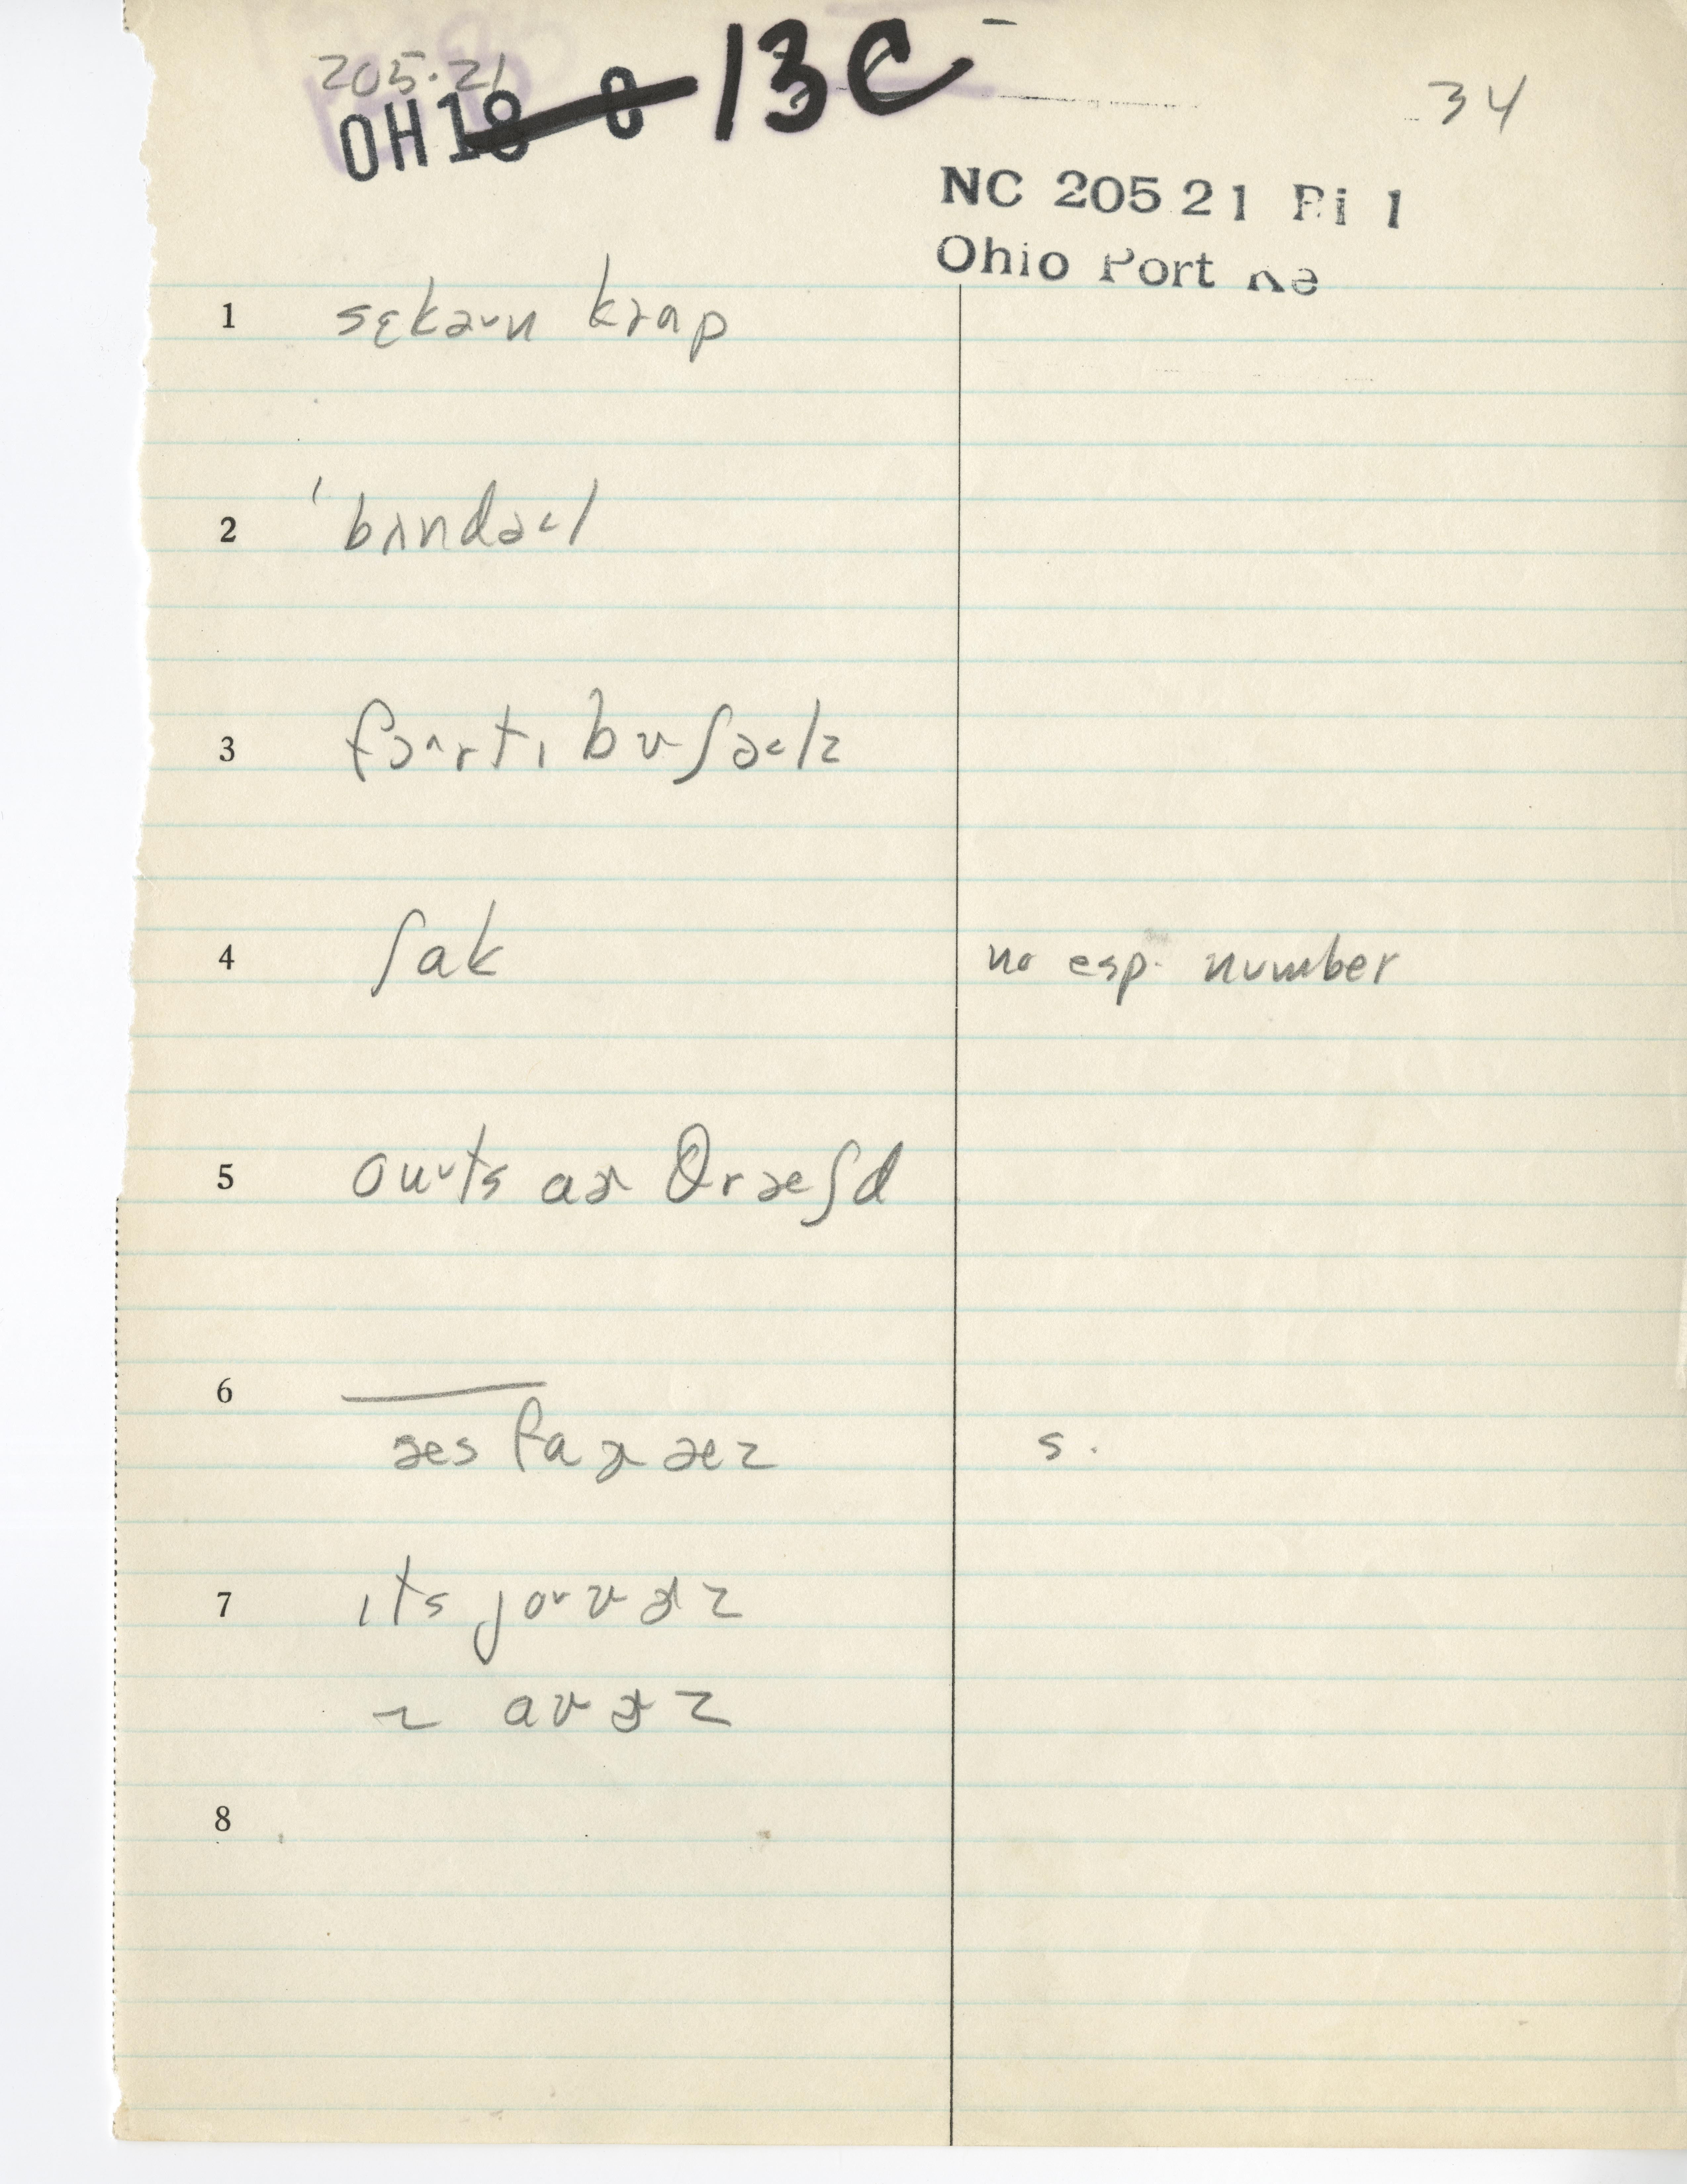 205.21
OH18 C 13C
34
NC 205 21 Ri 1
Ohio Port Ke
1 sɛkəᵕn krɑp
2 ˈbʌndəᵋl
3 fɔ^rtɪ bʊʃəᵋlz
4 ʃɑk
no esp. number
5 oᵘᵕts ɑɚ θræʃd
6 ——
æs fɑɚ æz
s.
7 ɪts joᵕʊɚz
~ ɑʊɚz
8